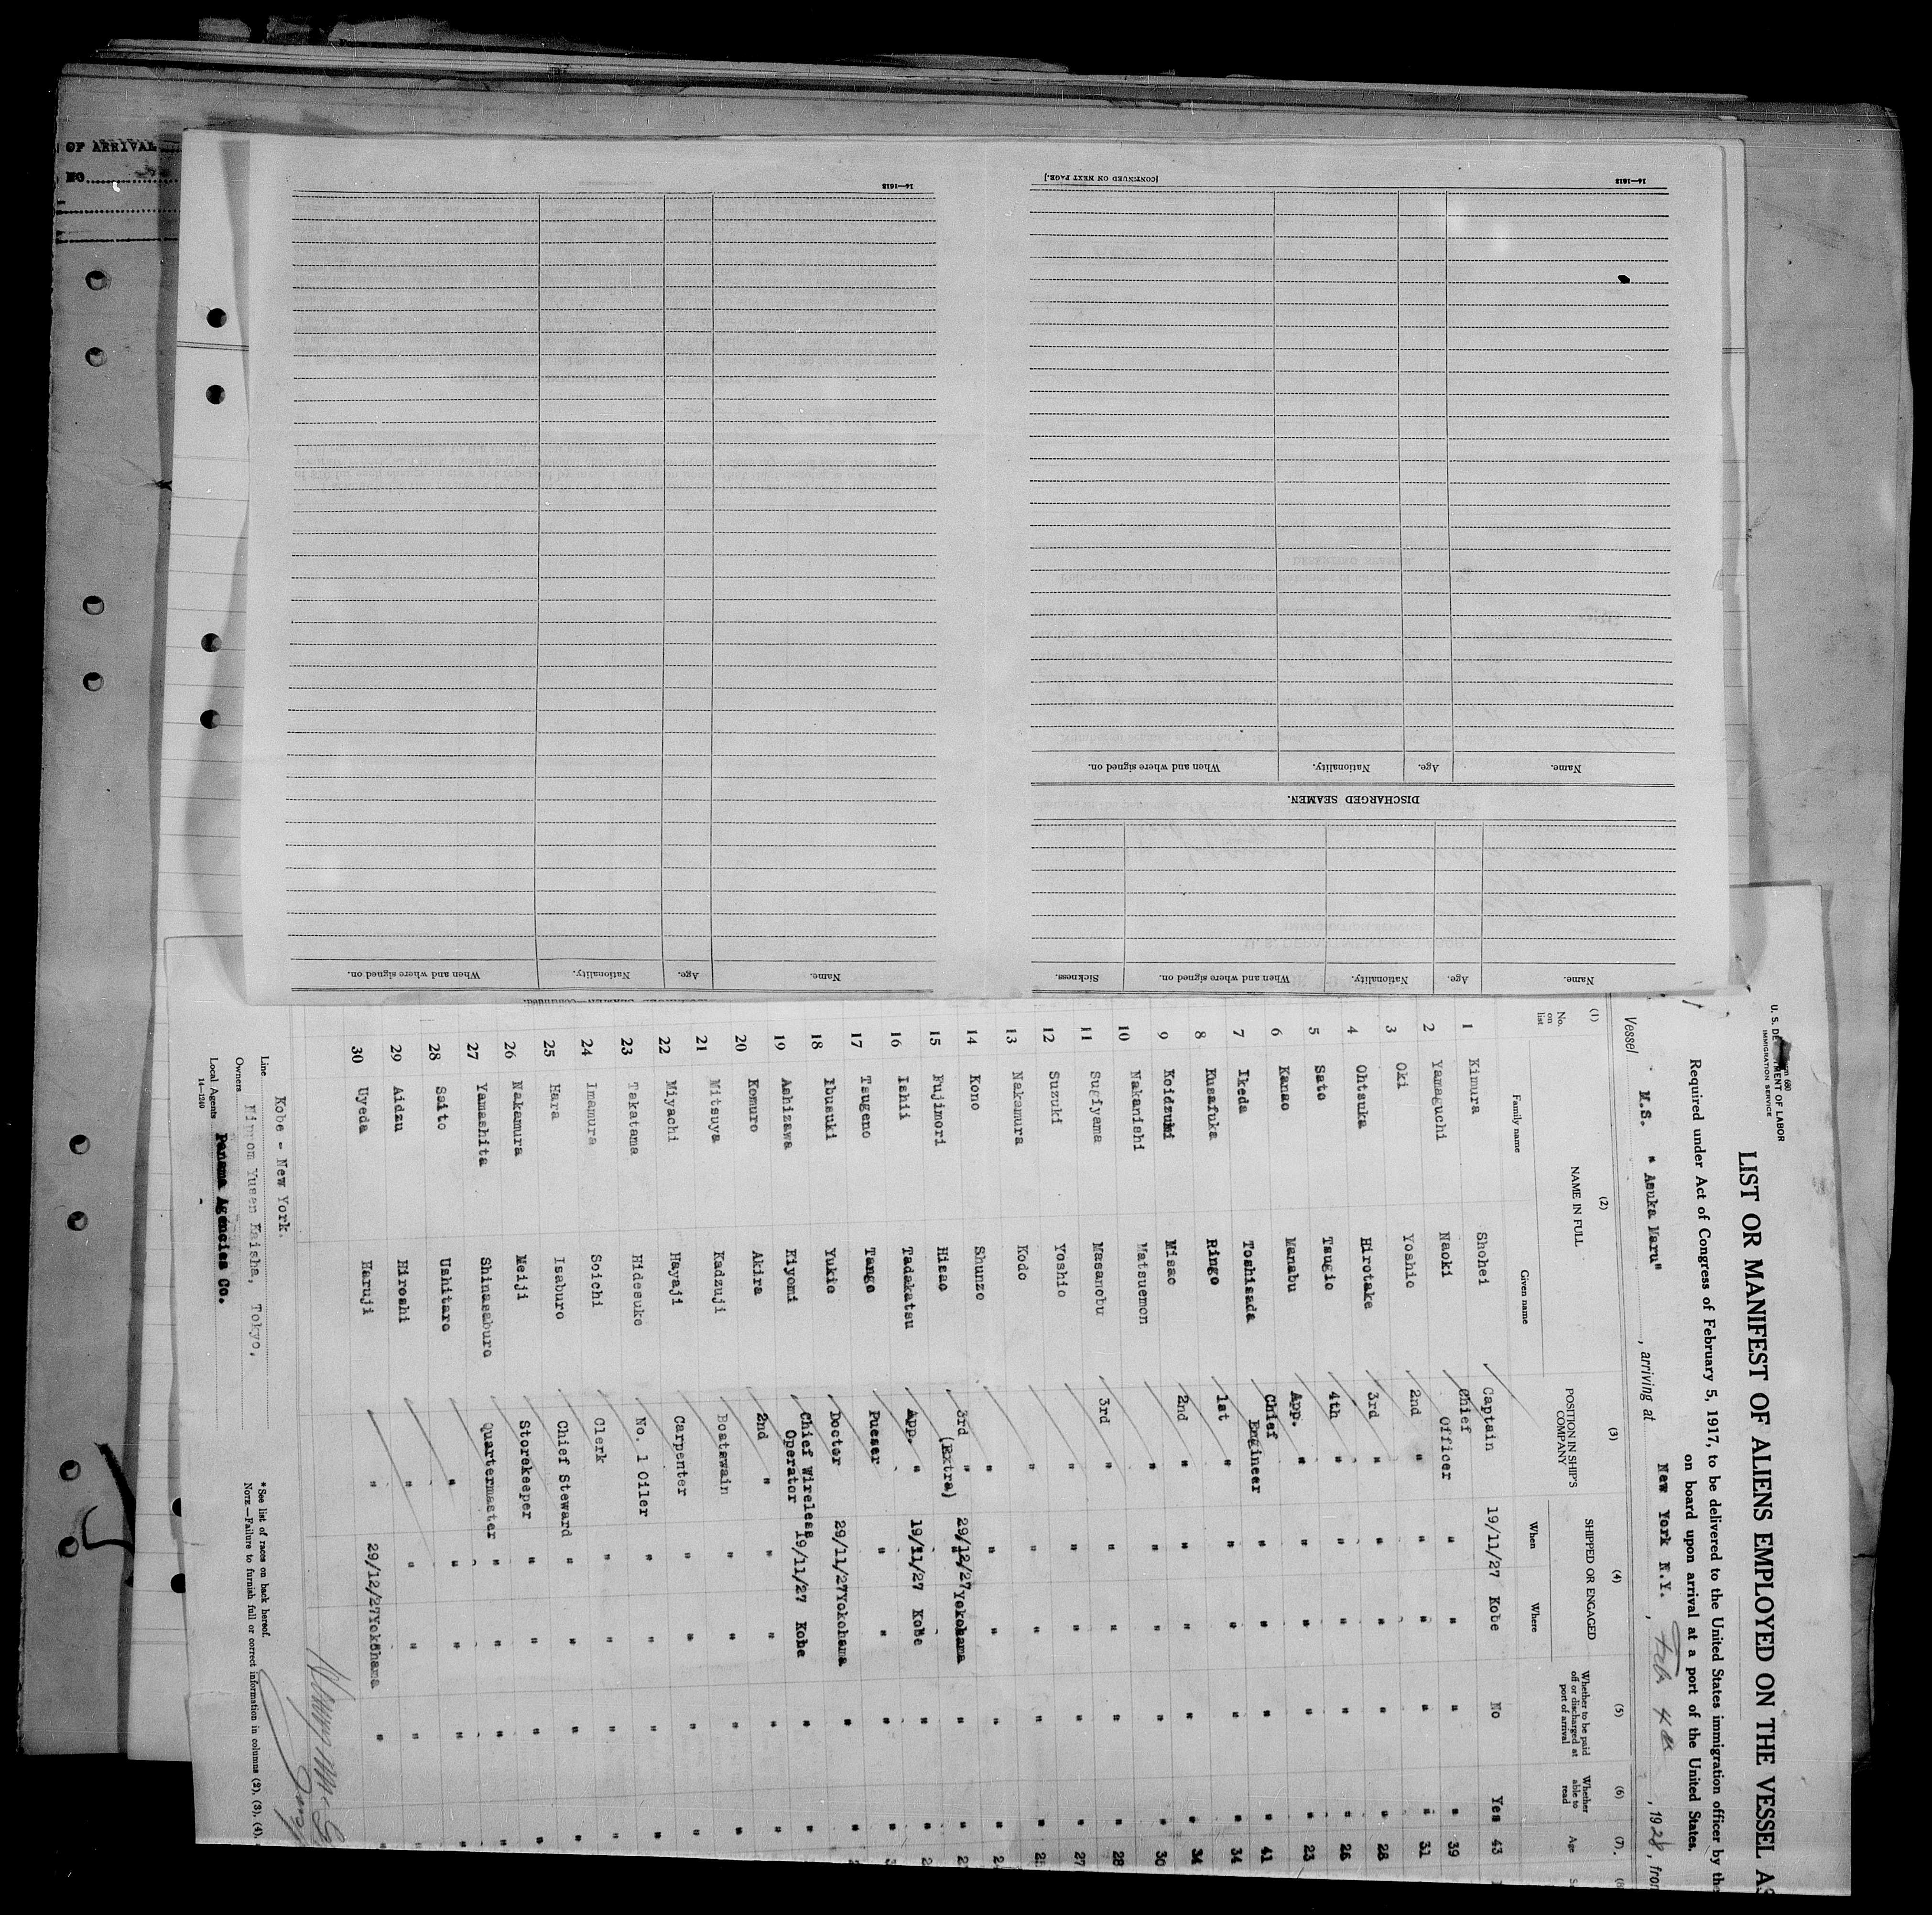 OF ARRIVAL
NO
[CONTINUED ON NEXT PAGE.]
14—1613
14—1613
Name.
Age.
Nationality.
When and where signed on.
DISCHARGED SEAMEN.
Name.
Age.
Nationality.
When and where signed on.
Sickness.
Name.
Age.
Nationality.
When and where signed on.
U. S. DEPARTMENT OF LABOR
IMMIGRATION SERVICE
LIST OR MANIFEST OF ALIENS EMPLOYED ON THE VESSEL AS
Required under Act of Congress of February 5, 1917, to be delivered to the United States immigration officer by the
on board upon arrival at a port of the United States.
Vessel M.S. "Asuka Maru" , arriving at New York N.Y. , Feb 1928, from
(1) (2) (3) (4) (5) (6) (7)
No. on list NAME IN FULL POSITION IN SHIP'S COMPANY SHIPPED OR ENGAGED Whether to be paid off or discharged at port of arrival Whether able to read Age
Family name Given name When Where
1 Kimura Shohei Captain 19/11/27 Kobe No Yes 43
2 Yamaguchi Naoki Chief Officer " " " " 39
3 Oki Yoshio 2nd " " " " " 31
4 Ohtsuka Hirotake 3rd " " " " " 28
5 Sato Tsugio 4th " " " " " 26
6 Kanao Manabu App. " " " " " 23
7 Ikeda Toshisada Chief Engineer " " " " 41
8 Kusafuka Ringo 1st " " " " " 34
9 Koidzumi Misao 2nd " " " " " 34
10 Nakanishi Matsuemon " " " " " 30
11 Sugiyama Masanobu 3rd " " " " " 28
12 Suzuki Yoshio " " " " " 27
13 Nakamura Kodo " " " " "
14 Kono Shunzo " " " " "
15 Fujimori Hisao 3rd " (Extra) 29/12/27 Yokohama " "
16 Ishii Tadakatsu App. " 19/11/27 Kobe " "
17 Tsugeno Tango Purser " " " "
18 Ibusuki Yukio Doctor 29/11/27 Yokohama " "
19 Ashizawa Kiyomi Chief Wireless Operator 19/11/27 Kobe " "
20 Komuro Akira 2nd " " " " "
21 Mitsuya Kadzuji Boatswain " " " "
22 Miyachi Hayaji Carpenter " " " "
23 Takatama Hidesuke No. 1 Oiler " " " "
24 Imamura Soichi Clerk " " " "
25 Hara Isaburo Chief Steward " " " "
26 Nakamura Meiji Storekeeper " " " "
27 Yamashita Shinasaburo Quartermaster " " " "
28 Saito Ushitaro " " " " "
29 Aidzu Hiroshi " " " " "
30 Uyeda Haruji " 29/12/27 Yokohama " "
Line Kobe - New York.
Owners Nippon Yusen Kaisha, Tokyo.
Local Agents Panama Agencies Co.
14—1240
*See list of races on back hereof.
NOTE.—Failure to furnish full or correct information in columns (2), (3), (4),